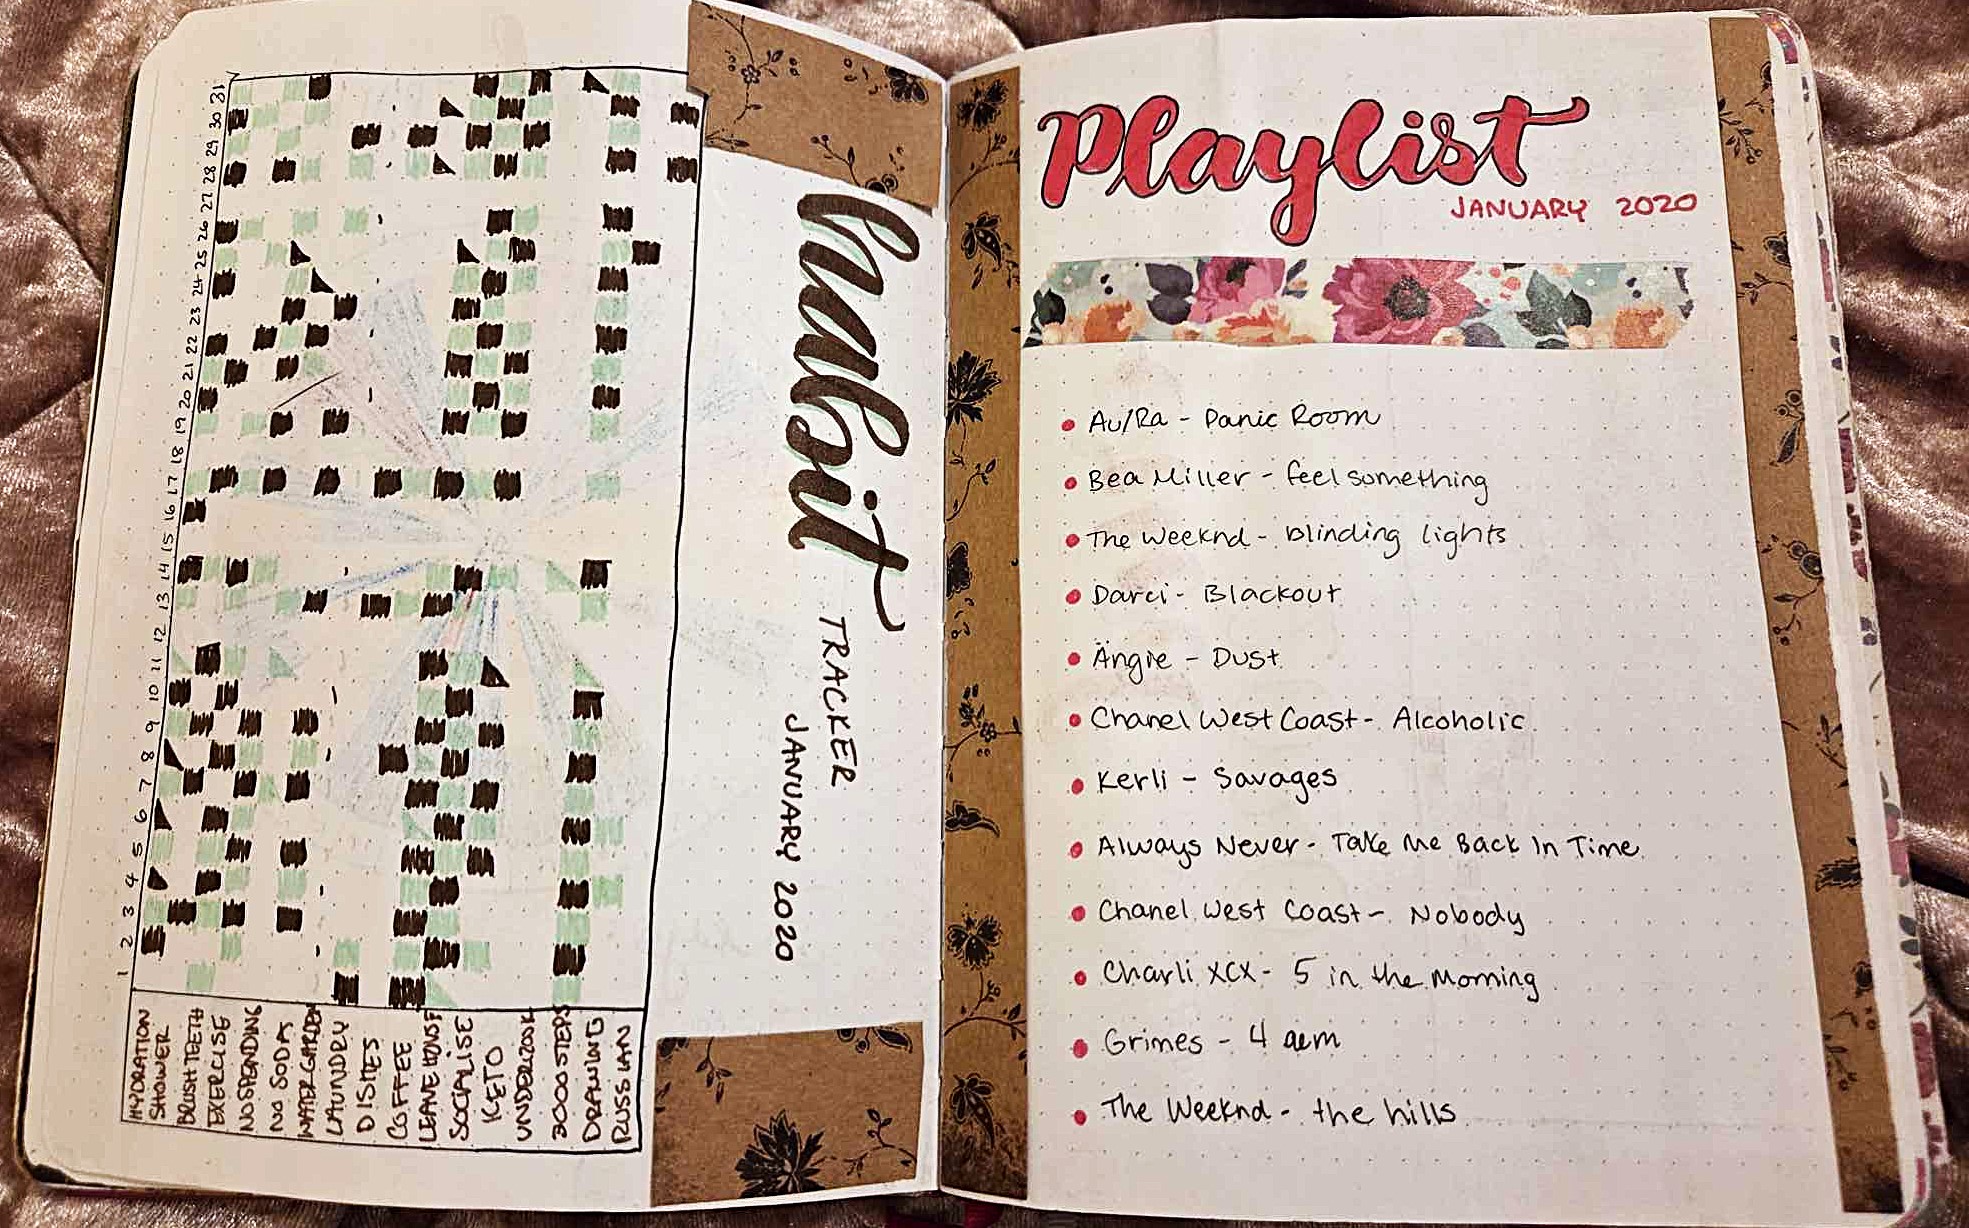 habit
TRACKER
JANUARY 2020
1 2 3 4 5 6 7 8 9 10 11 12 13 14 15 16 17 18 19 20 21 22 23 24 25 26 27 28 29 30 31
HYDRATION
SHOWER
BRUSH TEETH
EXERCISE
NO SPENDING
NO SODA
WATER GARDEN
LAUNDRY
DISHES
COFFEE
LEAVE HOUSE
SOCIALISE
KETO
UNDER 200K
3000 STEPS
DRAWING
RUSSIAN
Playlist
JANUARY 2020
Au/Ra - Panic Room
Bea Miller - feel something
The Weeknd - blinding lights
Darci - Blackout
Ängie - Dust
Chanel West Coast - Alcoholic
Kerli - Savages
Always Never - Take Me Back In Time
Chanel West Coast - Nobody
Charli XCX - 5 in the Morning
Grimes - 4 aem
The Weeknd - the hills